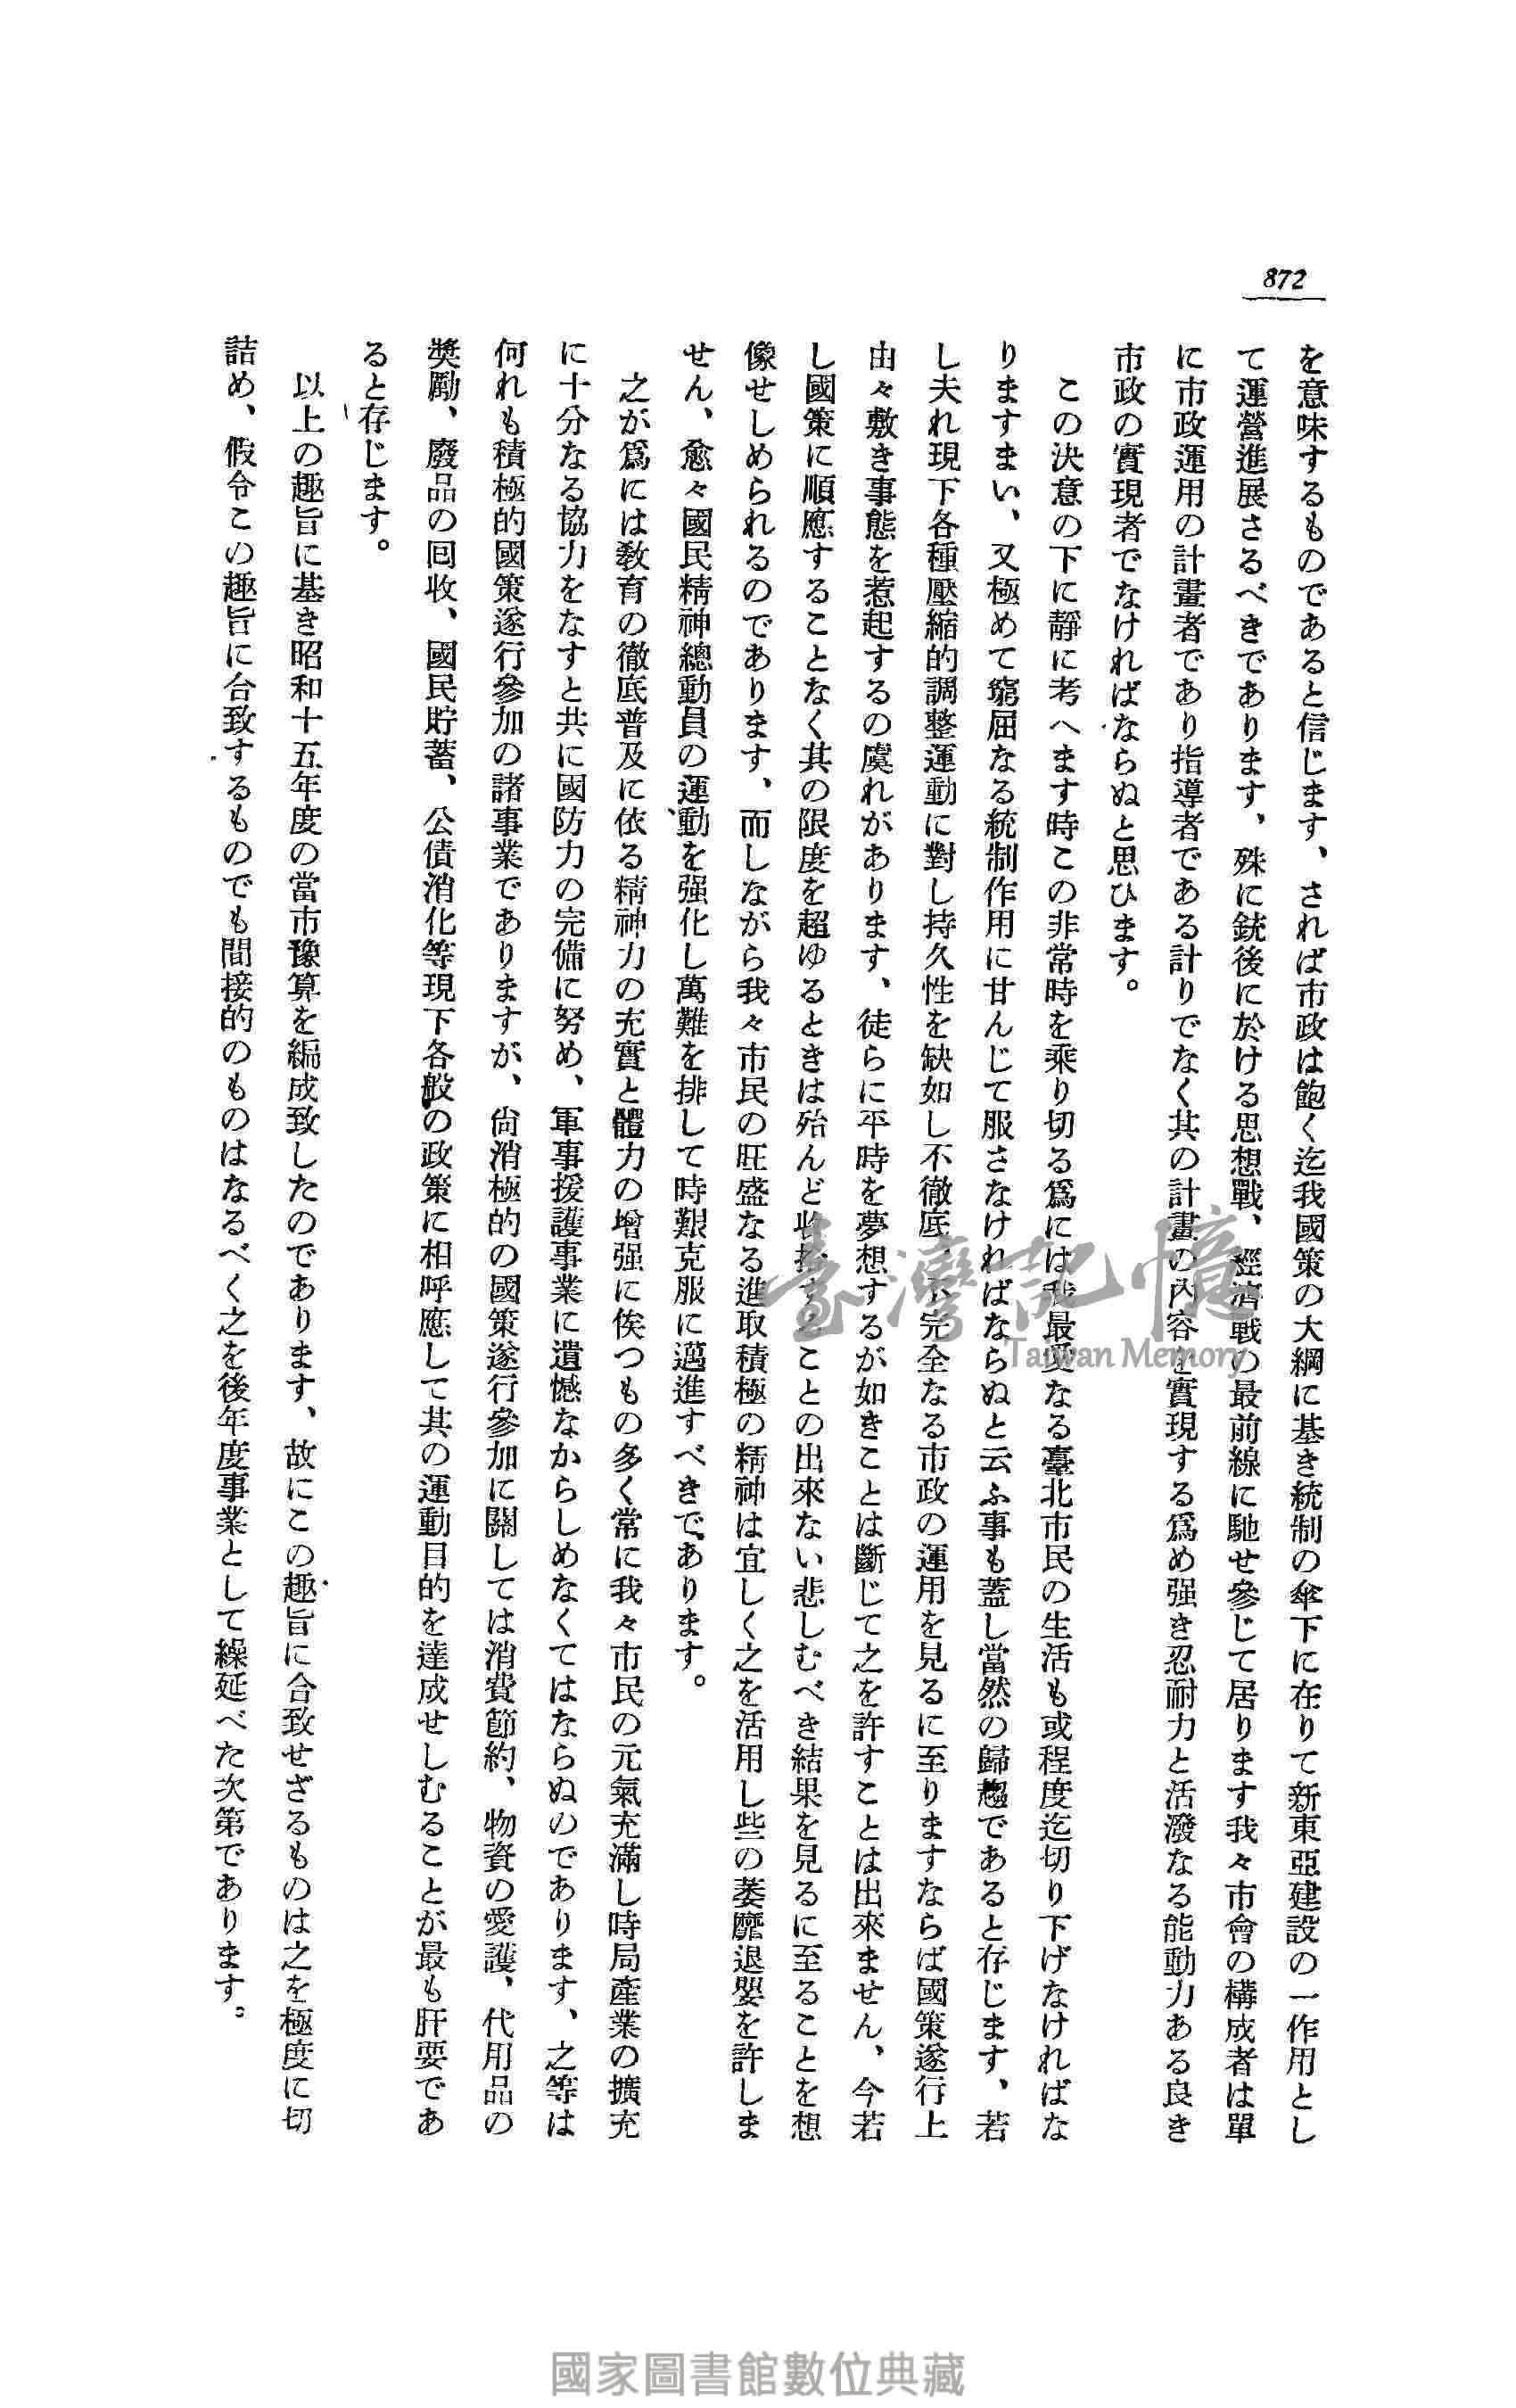 872
を意味するものであると信じます、されば市政は飽く迄我國策の大綱に基き統制の傘下に在りて新東亞建設の一作用とし
て運營進展さるべきであります、殊に銃後に於ける思想戰、經濟戰の最前線に馳せ參じて居ります我々市會の構成者は單
に市政運用の計畫者であり指導者である計りでなく其の計畫の內容を實現する爲め强き忍耐力と活潑なる能動力ある良き
市政の實現者でなければならぬと思ひます。
この決意の下に靜に考へます時この非常時を乘り切る爲には我最愛なる臺北市民の生活も或程度迄切り下げなければな
りますまい、又極めて窮屈なる統制作用に甘んじて服さなければならぬと云ふ事も蓋し當然の歸趨であると存じます、若
し夫れ現下各種壓縮的調整運動に對し持久性を缺如し不徹底、不完全なる市政の運用を見るに至りますならば國策遂行上
由々敷き事態を惹起するの虞れがあります、徒らに平時を夢想するが如きことは斷じて之を許すことは出來ません、今若
し國策に順應することなく其の限度を超ゆるときは殆んど收拾することの出來ない悲しむべき結果を見るに至ることを想
像せしめられるのであります、而しながら我々市民の旺盛なる進取積極の精神は宜しく之を活用し些の萎靡退嬰を許しま
せん、愈々國民精神總動員の運動を强化し萬難を排して時艱克服に邁進すべきであります。
之が爲には敎育の徹底普及に依る精神力の充實と體力の增强に俟つもの多く常に我々市民の元氣充滿し時局產業の擴充
に十分なる協力をなすと共に國防力の完備に努め、軍事援護事業に遺憾なからしめなくてはならぬのであります、之等は
何れも積極的國策遂行參加の諸事業でありますが、尙消極的の國策遂行參加に關しては消費節約、物資の愛護、代用品の
獎勵、廢品の回收、國民貯蓄、公債消化等現下各般の政策に相呼應して其の運動目的を達成せしむることが最も肝要であ
ると存じます。
以上の趣旨に基き昭和十五年度の當市豫算を編成致したのであります、故にこの趣旨に合致せざるものは之を極度に切
詰め、假令この趣旨に合致するものでも間接的のものはなるべく之を後年度事業として繰延べた次第であります。
臺灣記憶
Taiwan Memory
國家圖書館數位典藏